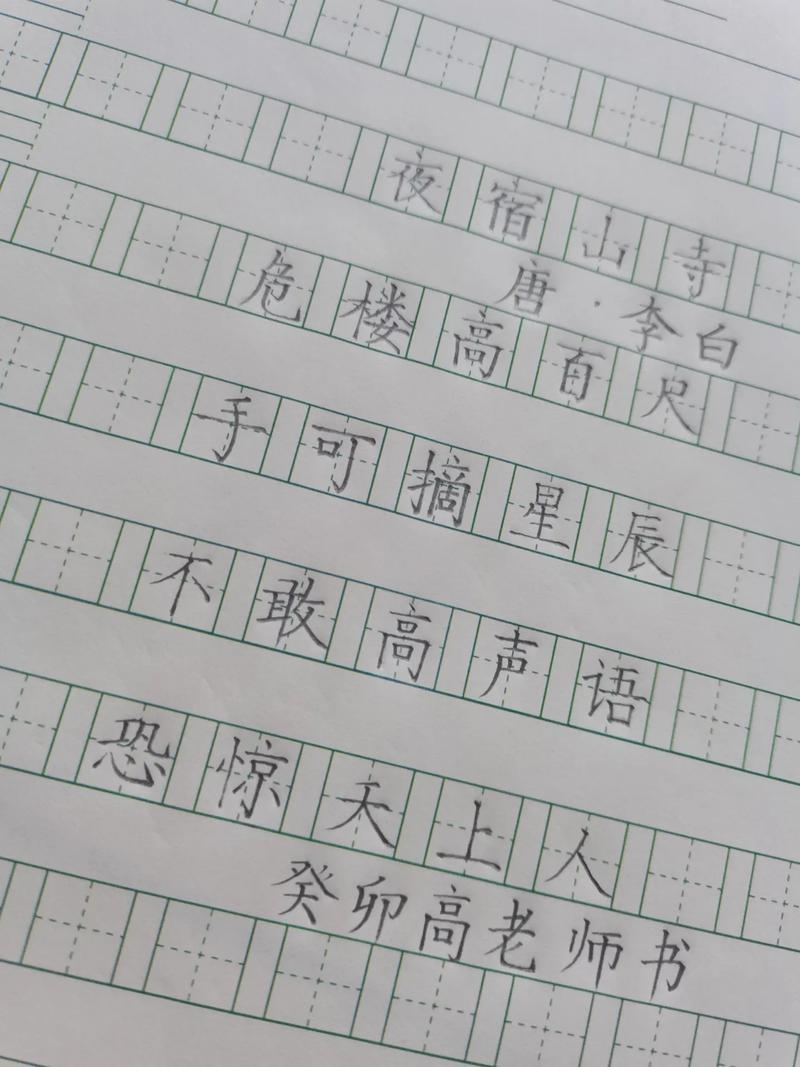 夜宿山寺
唐·李白
危楼高百尺
手可摘星辰
不敢高声语
恐惊天上人
癸卯高老师书